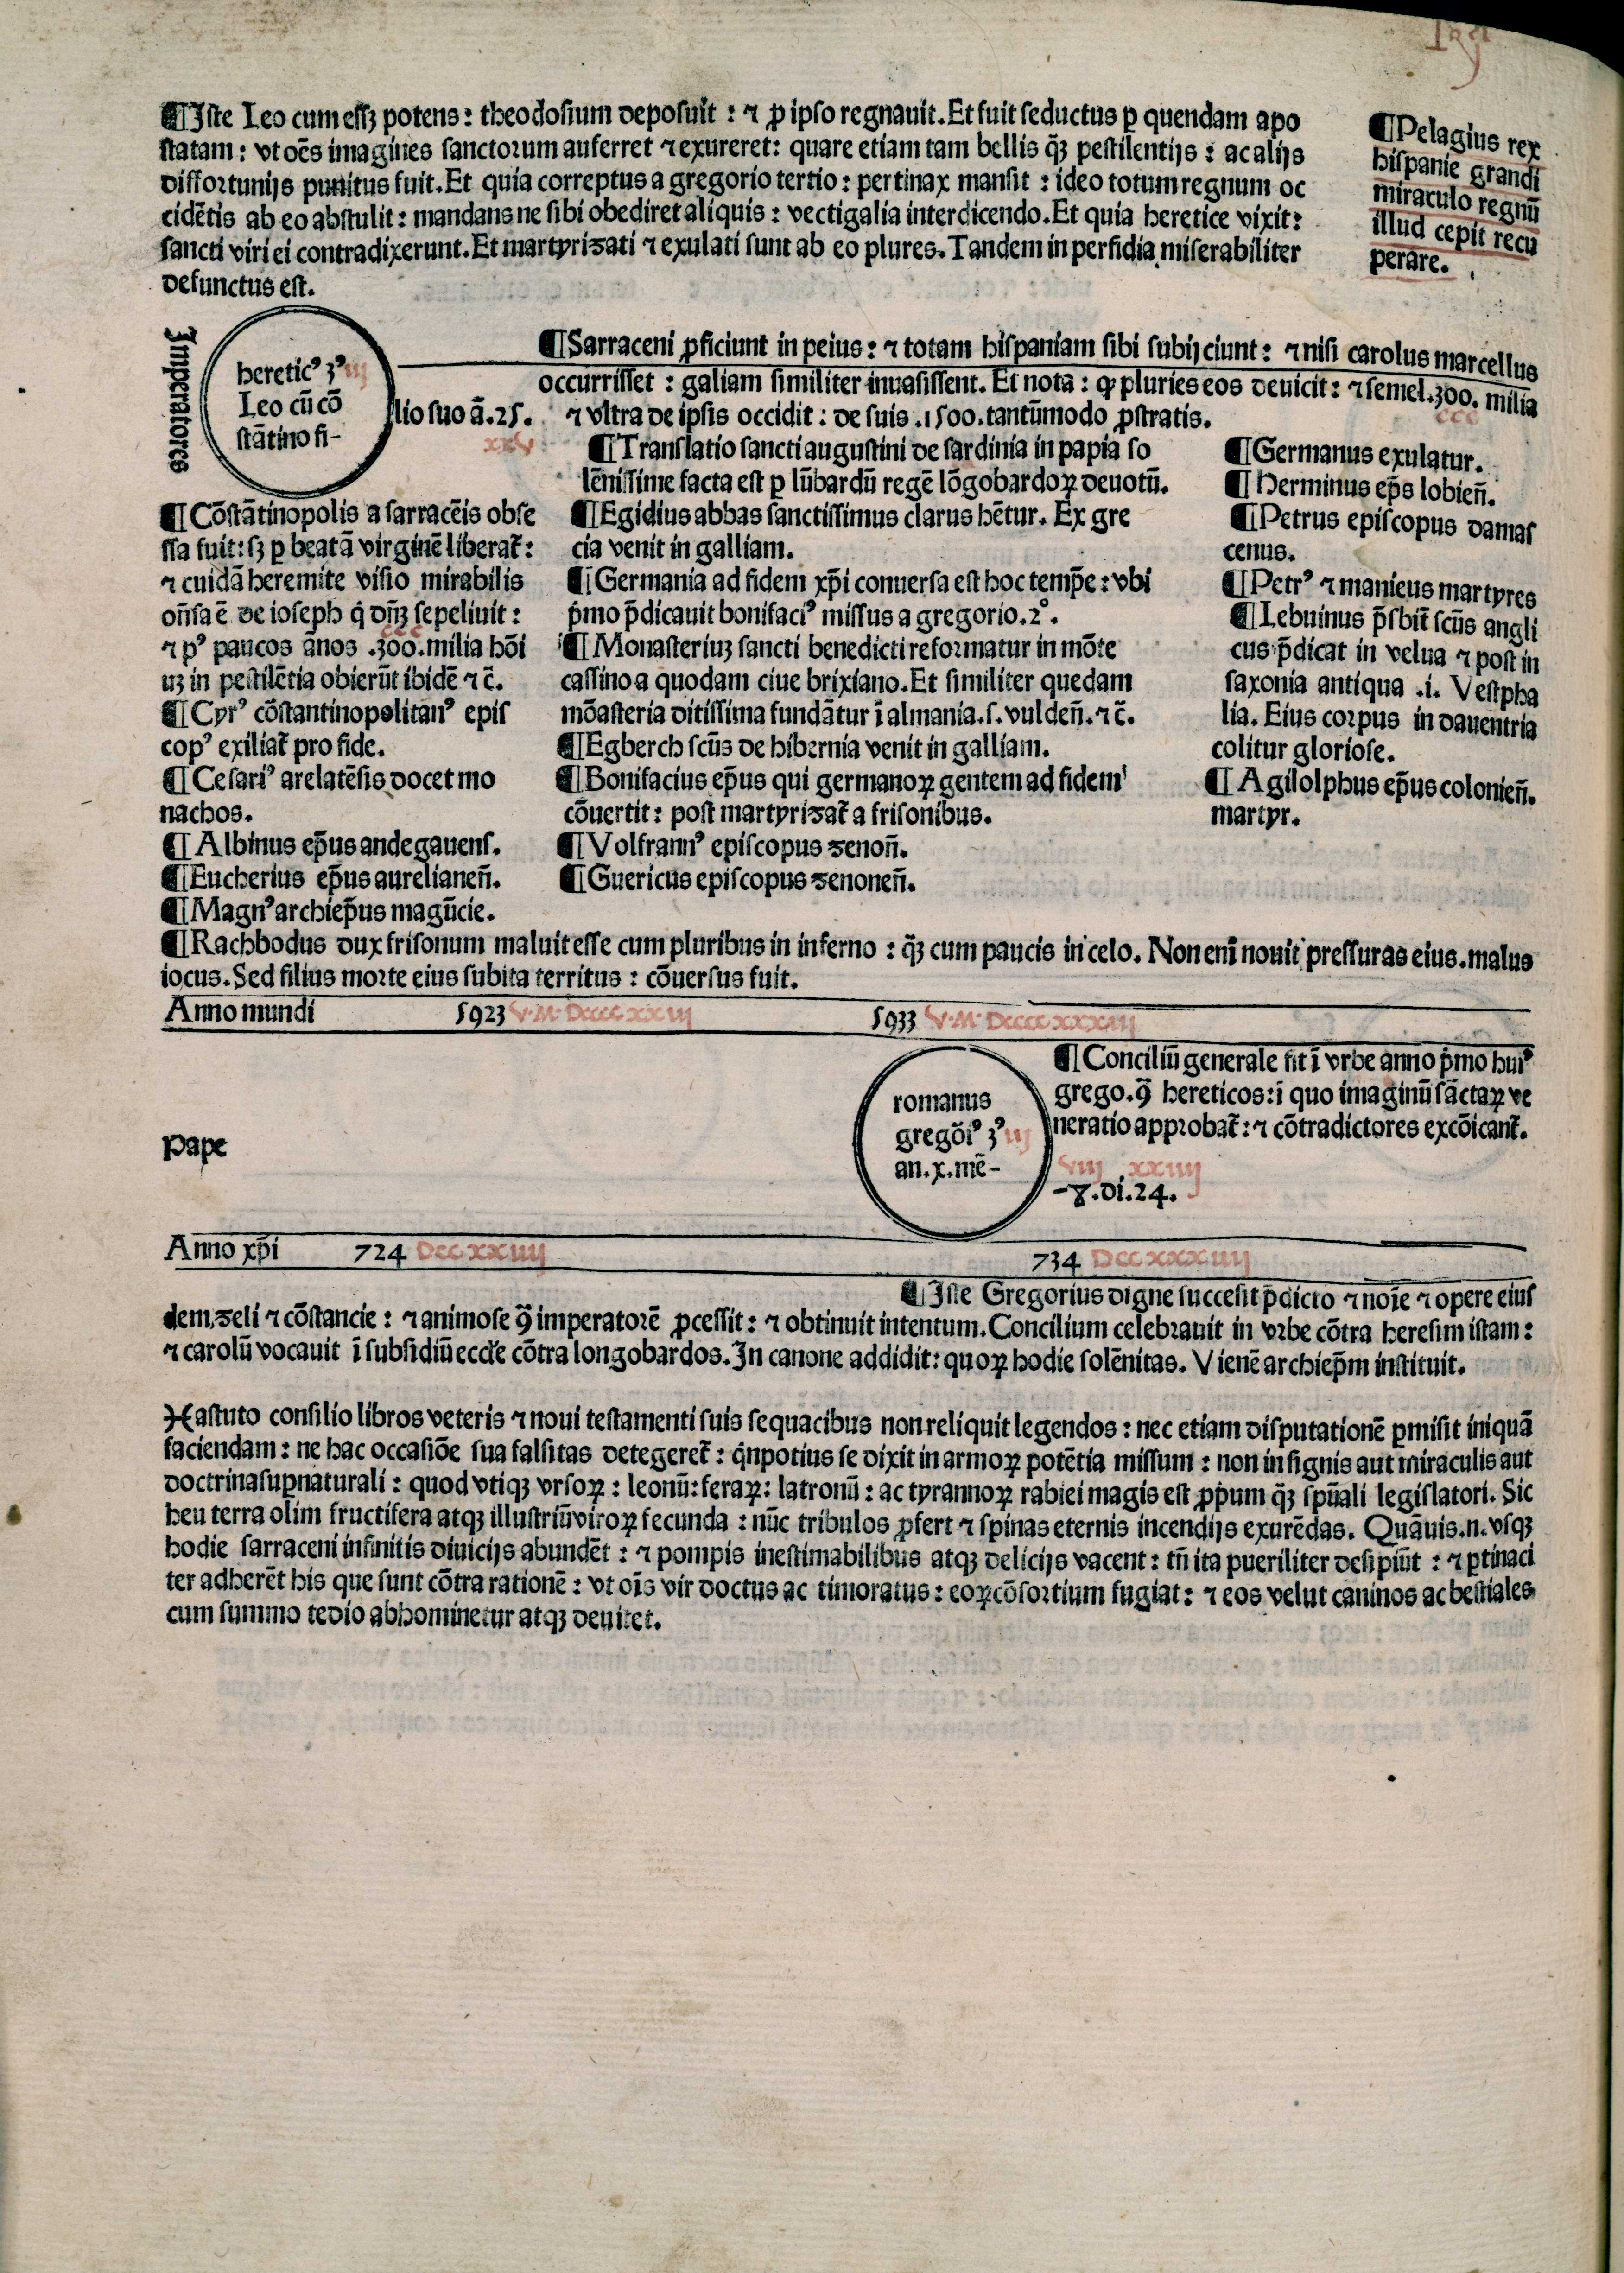 ¶Iste Leo cum essꝫ potens: theodosium deposuit: ⁊ ꝓ ipso regnauit. Et fuit seductus ꝑ quendam apo
statam: vt oēs imagines sanctorum auferret ⁊ exureret: quare etiam tam bellis qꝫ pestilentijs: ac alijs
diffortunijs punitus fuit. Et quia correptus a gregorio tertio: pertinax mansit: ideo totum regnum oc
cidētis ab eo abstulit: mandans ne sibi obediret aliquis: vectigalia interdicendo. Et quia heretice vixit:
sancti viri ei contradixerunt. Et martyrizati ⁊ exulati sunt ab eo plures. Tandem in perfidia miserabiliter
defunctus est.
¶Pelagius rex
hispanie grandi
miraculo regnū
illud cepit recu
perare.
Imperatores
heretic⁹ 3⁹ iij
Leo cū cō
stātino fi-
lio suo ā. 25.
xxv
¶Sarraceni ꝓficiunt in peius: ⁊ totam hispaniam sibi subijciunt: ⁊ nisi carolus marcellus
occurrisset: galiam similiter inuasissent. Et nota: ꝙ pluries eos deuicit: ⁊ semel .300. milia
ccc
⁊ vltra de ipsis occidit: de suis .1500. tantūmodo ꝓstratis.
¶Cōstātinopolis a sarracēis obse
ssa fuit: sꝫ ꝑ beatā virginē liberat̄:
⁊ cuidā heremite visio mirabilis
oñsa ē de ioseph q̇ dñꝫ sepeliuit:
ccc
⁊ p⁹ paucos ānos .300. milia hōi
uꝫ in pestilētia obierūt ibidē ⁊ c̄.
¶Cyr⁹ cōstantinopolitan⁹ epis
cop⁹ exiliat̄ pro fide.
¶Cesari⁹ arelatēsis docet mo
nachos.
¶Albinus ep̄us andegauens.
¶Eucherius ep̄us aurelianeñ.
¶Magn⁹ archiep̄us magūcie.
¶Translatio sancti augustini de sardinia in papia so
lēnissime facta est ꝑ lūbardū regē lōgobardoꝝ deuotū.
¶Egidius abbas sanctissimus clarus hētur. Ex gre
cia venit in galliam.
¶Germania ad fidem xp̄i conuersa est hoc temp̄e: vbi
p̄mo p̄dicauit bonifaci⁹ missus a gregorio .2°.
¶Monasteriuꝫ sancti benedicti reformatur in mōte
cassino a quodam ciue brixiano. Et similiter quedam
mōasteria ditissima fundātur ī almania .s. vuldeñ. ⁊ c̄.
¶Egberch scūs de hibernia venit in galliam.
¶Bonifacius ep̄us qui germanoꝝ gentem ad fidem
cōuertit: post martyrizat̄ a frisonibus.
¶Volfrann⁹ episcopus zenoñ.
¶Guericus episcopus zenoneñ.
¶Germanus exulatur.
¶Herminus ep̄s lobieñ.
¶Petrus episcopus damas
cenus.
¶Petr⁹ ⁊ manieus martyres
¶Lebuinus p̄sbit̄ scūs angli
cus p̄dicat in velua ⁊ post in
saxonia antiqua .i. Vestpha
lia. Eius corpus in dauentria
colitur gloriose.
¶Agilolphus ep̄us colonieñ.
martyr.
¶Rachbodus dux frisonum maluit esse cum pluribus in inferno: qꝫ cum paucis in celo. Non enī nouit pressuras eius. malus
iocus. Sed filius morte eius subita territus: cōuersus fuit.
Anno mundi 5923 V.M.Dcccc xxiij 5933 V.M.Dcccc xxxiij
Pape
romanus
gregōi⁹ 3⁹ iij
an. x. mē-
viij xxiiij
-8. di. 24.
¶Conciliū generale fit ī vrbe anno p̄mo hui⁹
grego. ꝯ̄ hereticos: ī quo imaginū sāctaꝝ ve
neratio approbat̄: ⁊ cōtradictores excōicant̄.
Anno xp̄i 724 Dcc xxiiij 734 Dcc xxxiiij
¶Iste Gregorius digne successit p̄dicto ⁊ noīe ⁊ opere eius
dem, zeli ⁊ cōstancie: ⁊ animose ꝯ̄ imperatorē ꝓcessit: ⁊ obtinuit intentum. Concilium celebrauit in vrbe cōtra heresim istam:
⁊ carolū vocauit ī subsidiū eccl̄e cōtra longobardos. In canone addidit: quoꝝ hodie solēnitas. Vienē archiep̄m instituit.
astuto consilio libros veteris ⁊ noui testamenti suis sequacibus non reliquit legendos: nec etiam disputationē ꝑmisit iniquā
faciendam: ne hac occasiōe sua falsitas detegeret̄: q̇npotius se dixit in armoꝝ potētia missum: non in signis aut miraculis aut
doctrina suꝑnaturali: quod vtiqꝫ vrsoꝝ: leonū: feraꝝ: latronū: ac tyrannoꝝ rabiei magis est ꝓp̄um qꝫ spūali legislatori. Sic
heu terra olim fructifera atqꝫ illustriū viroꝝ fecunda: nūc tribulos ꝓfert ⁊ spinas eternis incendijs exurēdas. Quāuis .n. vsqꝫ
hodie sarraceni infinitis diuicijs abundēt: ⁊ pompis inestimabilibus atqꝫ delicijs vacent: tñ ita pueriliter desipiūt: ⁊ ꝑtinaci
ter adherēt his que sunt cōtra rationē: vt oīs vir doctus ac timoratus: eoꝝ cōsortium fugiat: ⁊ eos velut caninos ac bestiales
cum summo tedio abhominetur atqꝫ deuitet.